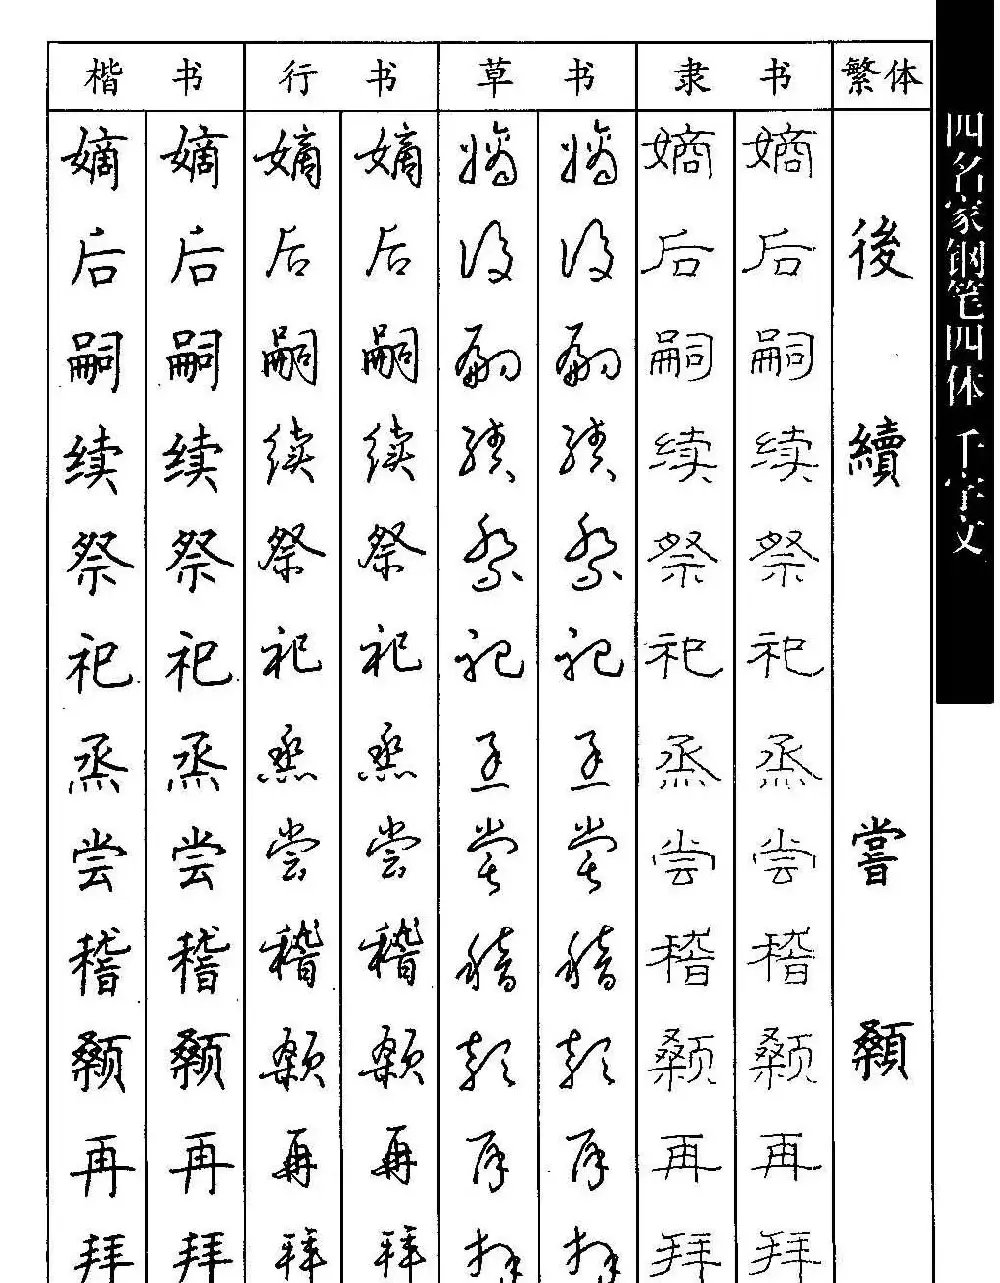 楷书 行书 草书 隶书 繁体
嫡 嫡 嫡 嫡 嫡 嫡 嫡 嫡
后 后 后 后 后 后 后 后 後
嗣 嗣 嗣 嗣 嗣 嗣 嗣 嗣
续 续 续 续 续 续 续 续 續
祭 祭 祭 祭 祭 祭 祭 祭
祀 祀 祀 祀 祀 祀 祀 祀
烝 烝 烝 烝 烝 烝 烝 烝
尝 尝 尝 尝 尝 尝 尝 尝 嘗
稽 稽 稽 稽 稽 稽 稽 稽
颡 颡 颡 颡 颡 颡 颡 颡 顙
再 再 再 再 再 再 再 再
拜 拜 拜 拜 拜 拜 拜 拜
四名家钢笔四体 千字文